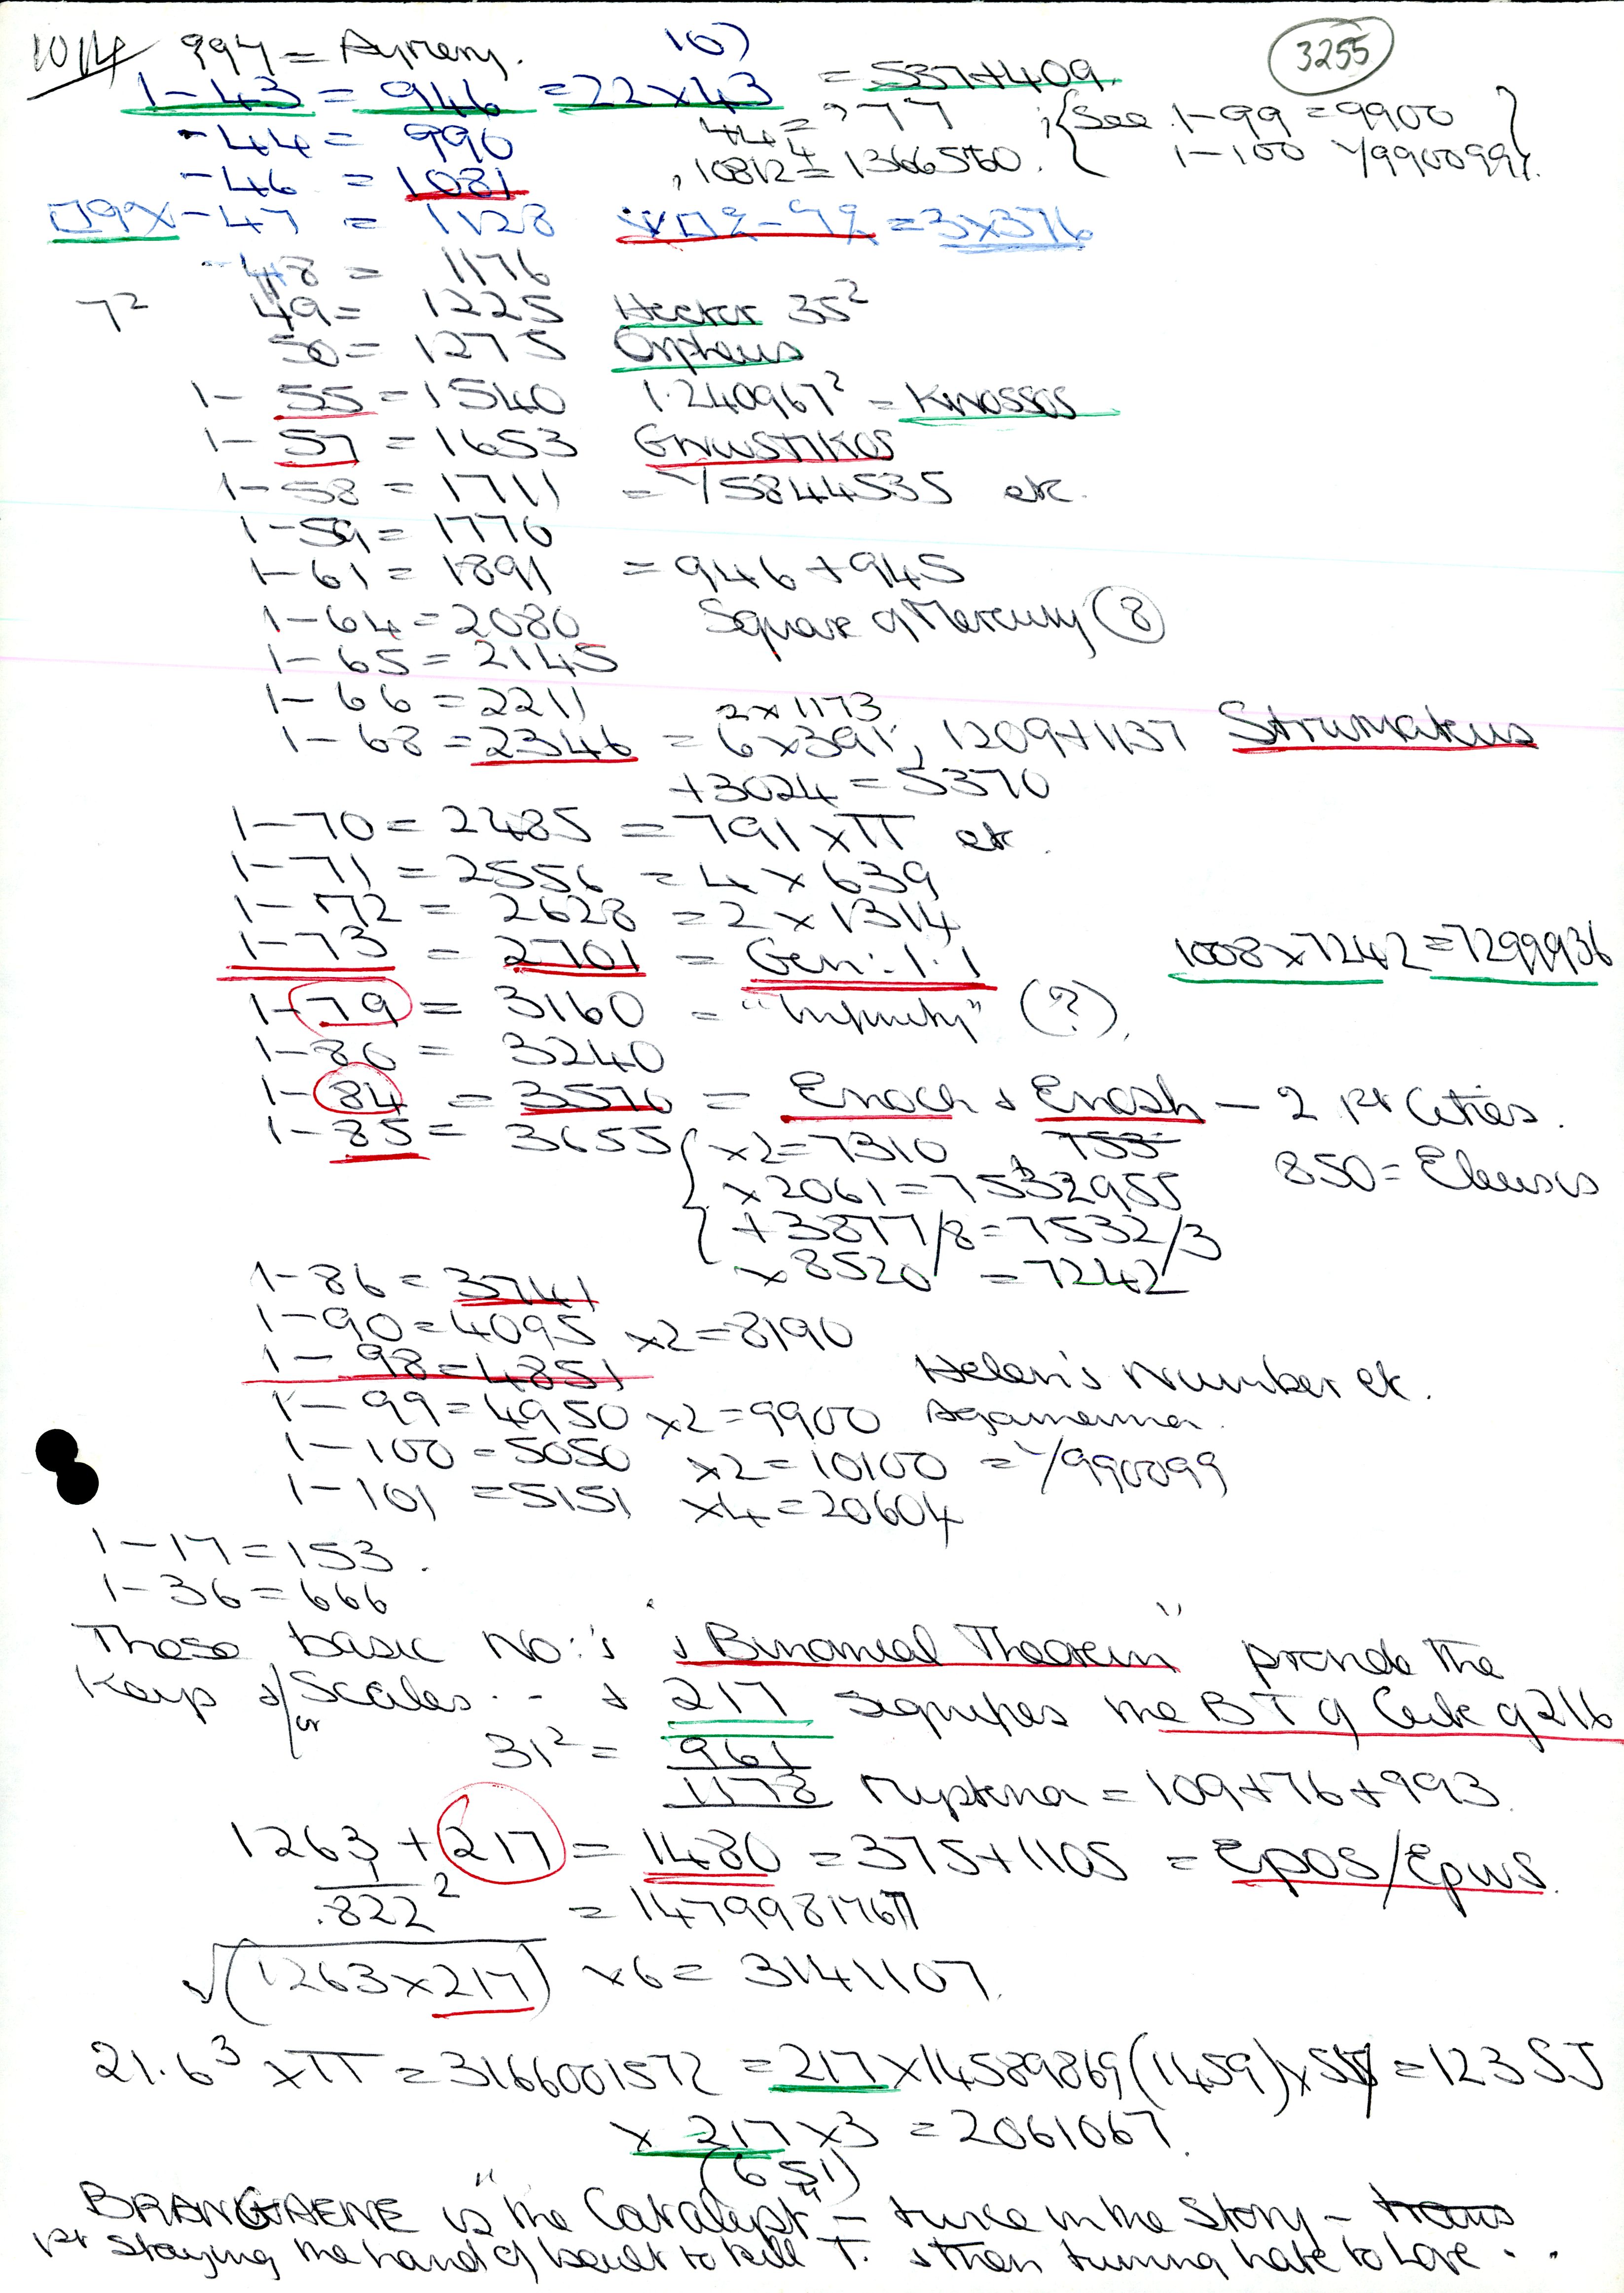 1014 994 = 10) 3255
1-43 = 946 = 22x43 = 537+409
-44 = 990
-46 = 1081 , 10812 = 1366560. {See 1-99 = 9900
1-100 1/990099}.
-47 = 1128 = 3x376
-48 = 1176
7² 49 = 1225 Hector 35²
50 = 1275 Orpheus
1- 55 = 1540 1.240967² = Knossos
1- 57 = 1653 Gnwstikos
1-58 = 1711 = 1/5844535 etc.
1-59 = 1770
1-61 = 1891 = 946+945
1-64 = 2080 Square of Mercury (8)
1-65 = 2145
1-66 = 2211
2x1173
1-68 = 2346 = 6x391; 1209+1137
+3024 = 5370
1-70 = 2485 = 791xπ etc.
1-71 = 2556 = 4x639
1-72 = 2628 = 2x1314
1-73 = 2701 = Gen: 1.1 1008x7242 = 7299936
1-79 = 3160 = "Infinity" (?).
1-80 = 3240
1-84 = 3570 = Enoch & Enosh - 2 1st Cities.
1-85 = 3655 { x2 = 7310 850 = Eleusis
x2061 = 7532955
+3877/8 = 7532/3
x8520 = 7242
1-86 = 3741
1-90 = 4095 x2 = 8190
1-98 = 4851 Helen's Number etc.
1-99 = 4950 x2 = 9900 Agamemnon.
1-100 = 5050 x2 = 10100 = 1/990099
1-101 = 5151 x4 = 20604
1-17 = 153.
1-36 = 666
These basic No:'s & "Binomial Theorem" provide the
Keys &/or Scales... & 217 signifies the BT of Cube of 216
31² = 961
1178 = 109+76+993.
1263 + 217 = 1480 = 375+1105 = Epos/Epws.
1/.822² = 1479981767
√(1263x217) x6 = 3141107.
21.6³ xπ = 3166001572 = 217x14589869(1459) = 123SJ
x 217 x3 = 2061067.
(651)
BRANGAENE is "the Catalyst" - twice in the Story -
1st Staying the hand of Iseult to kill T. & then turning hate to Love...